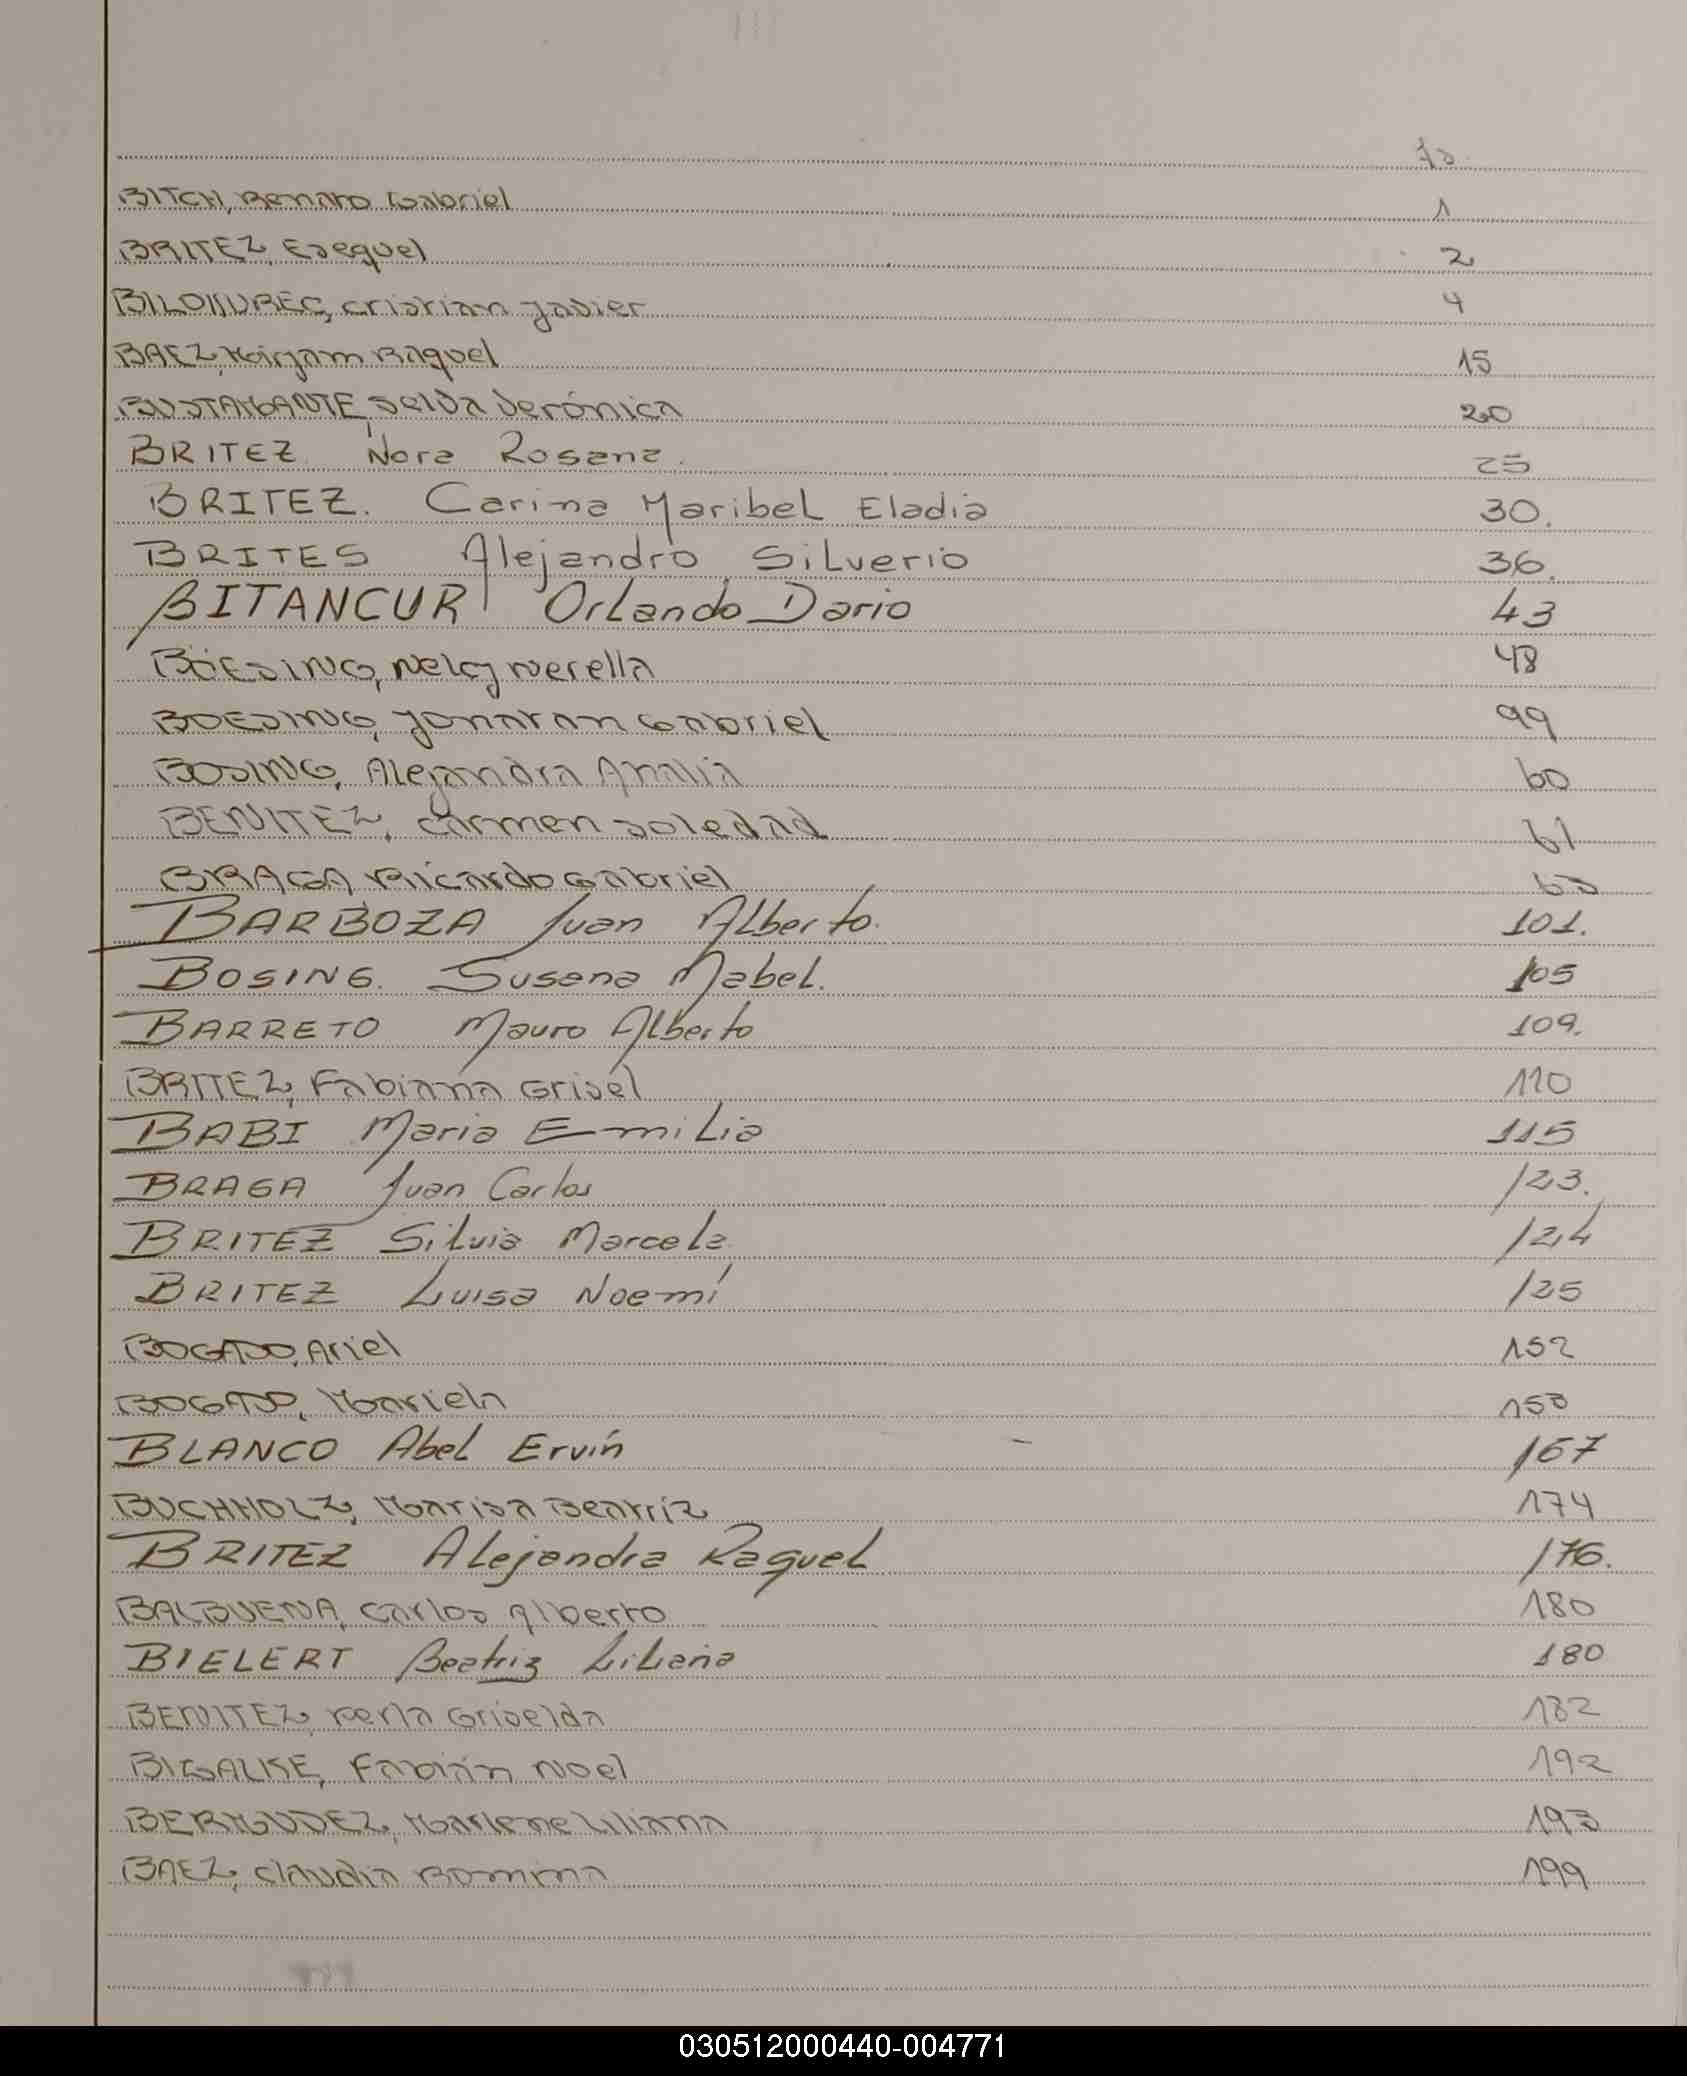 Fo
BITCH, Renato Gabriel 1
BRITEZ, Ezequel 2
Cristian Javier 4
BAEZ, Mirjam Raquel 15
BUSTAMANTE, Selva Verónica 20
BRITEZ Nora Rosana. 25
BRITEZ. Carina Maribel Eladia 30.
BRITES Alejandro Silverio 36.
BITANCUR Orlando Dario 43
BOESING, Nelcy Nerella 48
BOESING, Jonatan Gabriel 99
BOSING, Alejandra Analia 60
BENITEZ, Carmen Soledad 61
BRAGA, Ricardo Gabriel
BARBOZA Juan Alberto. 101.
BOSING. Susana Mabel. 105
BARRETO Mauro Alberto 109.
BRITEZ, Fabiana Grisel 110
BABI Maria Emilia 115
BRAGA Juan Carlos 123.
BRITEZ Silvia Marcela 124
BRITEZ Luisa Noemí 125
BOGADO, Ariel 152
BOGADO, Mariela 153
BLANCO Abel Ervín 167
BUCHHOLZ, Marisa Beatriz 174
BRITEZ Alejandra Raquel 176.
BALBUENA, Carlos Alberto 180
BIELERT Beatriz Liliana 180
BENITEZ, Perla Griselda 182
BIGALKE, Fabián Noel 192
BERMUDEZ, Marlene Liliana 193
BAEZ, Claudia Romina 199
030512000440-004771